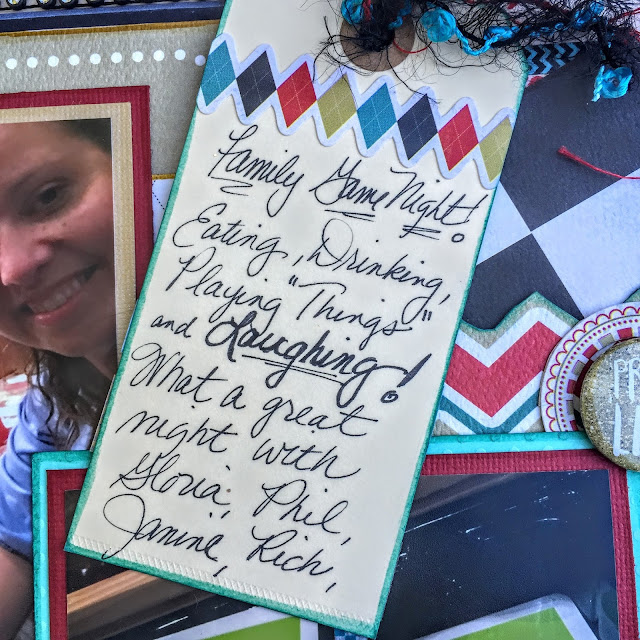 Family Game Night!
Eating, Drinking,
Playing "Things"
and Laughing!
What a great
night with
Gloria, Phil,
Janine, Rich,